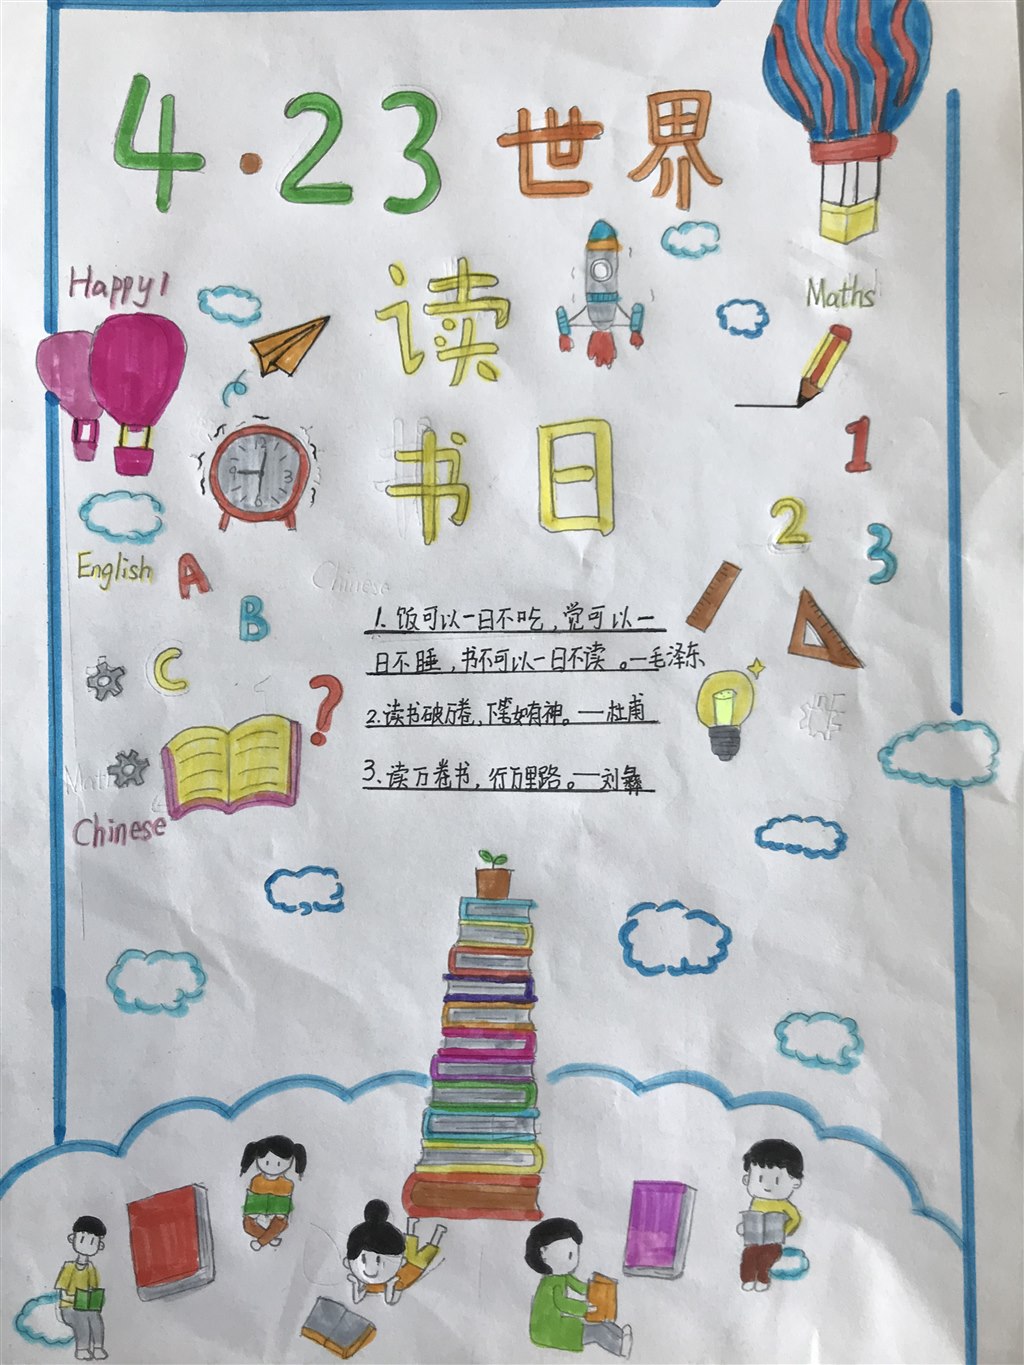 4·23 世界
读
书日
Happy!
Maths
English
A
B
C
?
1
2
3
12
3
6
9
Chinese
1. 饭可以一日不吃，觉可以一
日不睡，书不可以一日不读。—毛泽东
2.读书破万卷，下笔如有神。—杜甫
3、读万卷书，行万里路。—刘彝
Math
Chinese